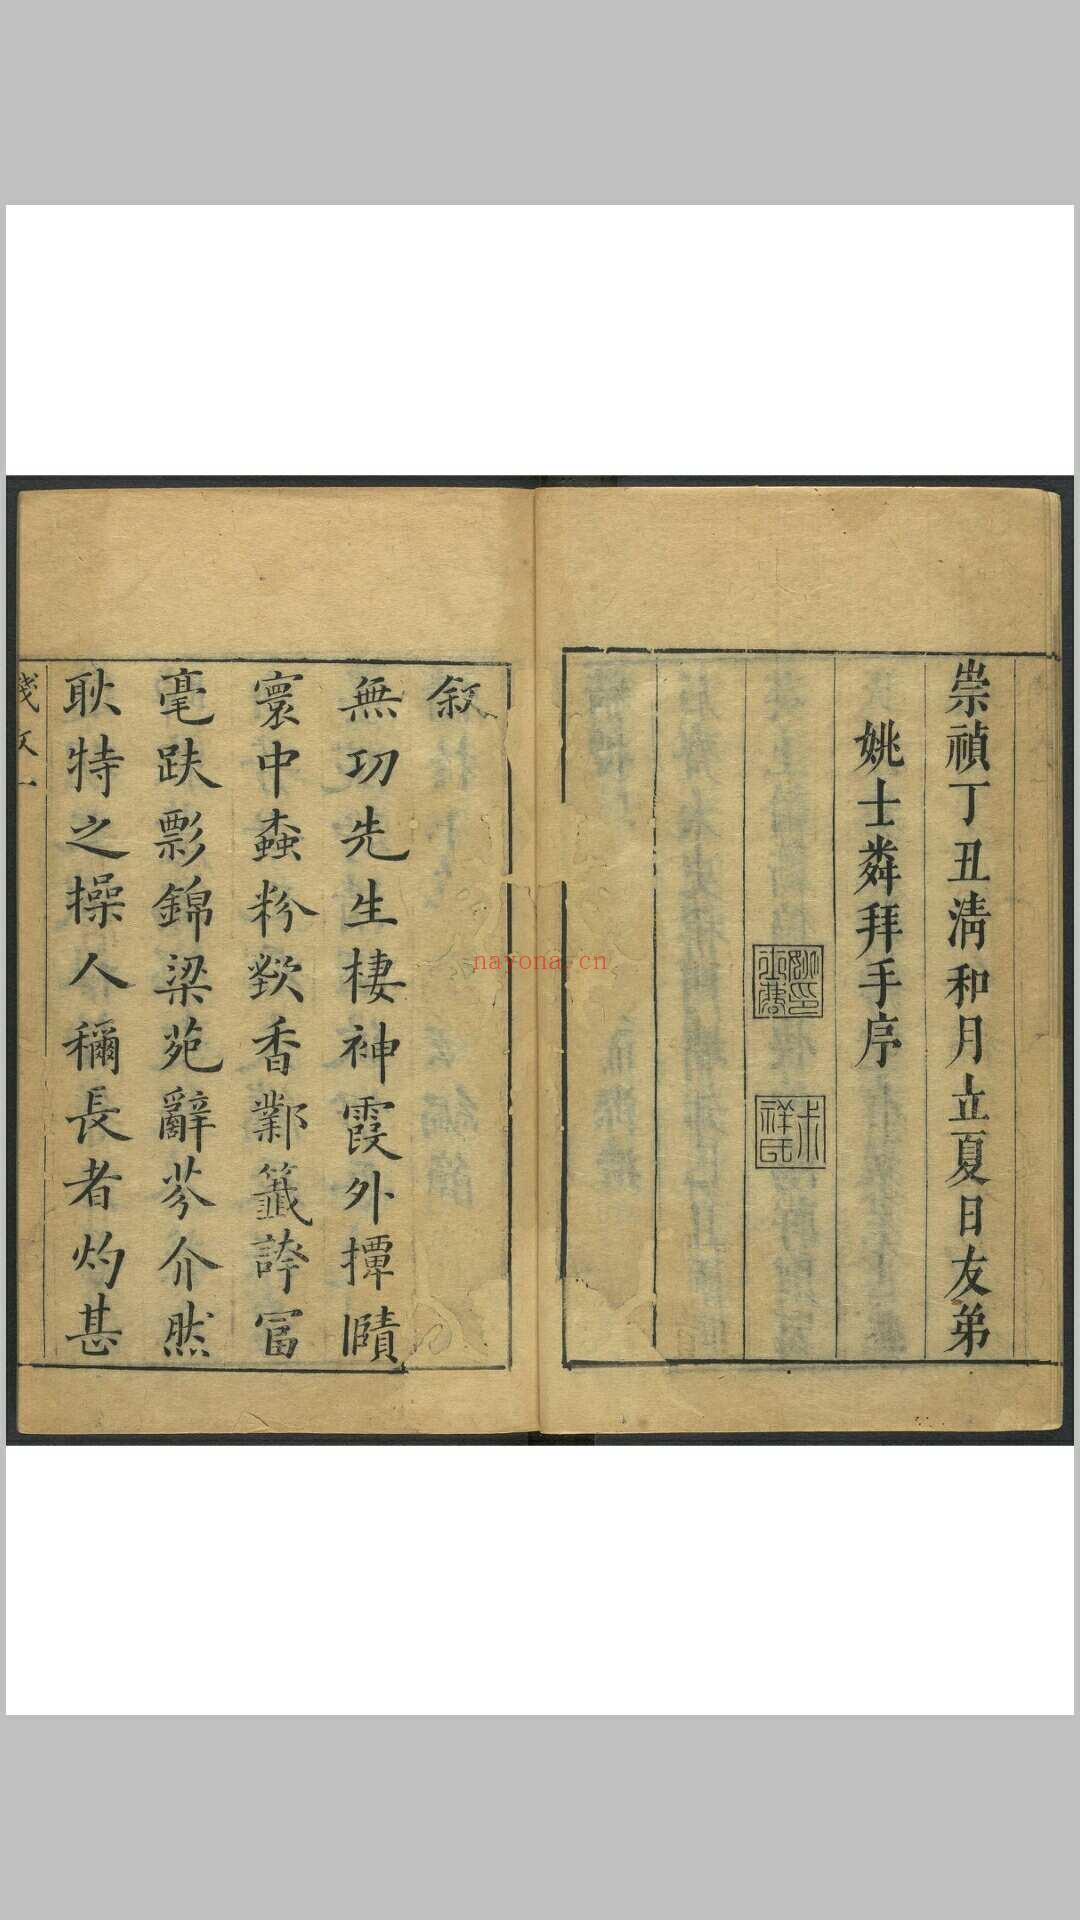 崇禎丁丑淸和月立夏日友弟
姚士粦拜手序
叙
無功先生棲神霞外撢賾
寰中螙粉欵香鄴籤誇富
毫趺彯錦梁苑辭芬介然
耿特之操人穪長者灼甚
nayona.cn